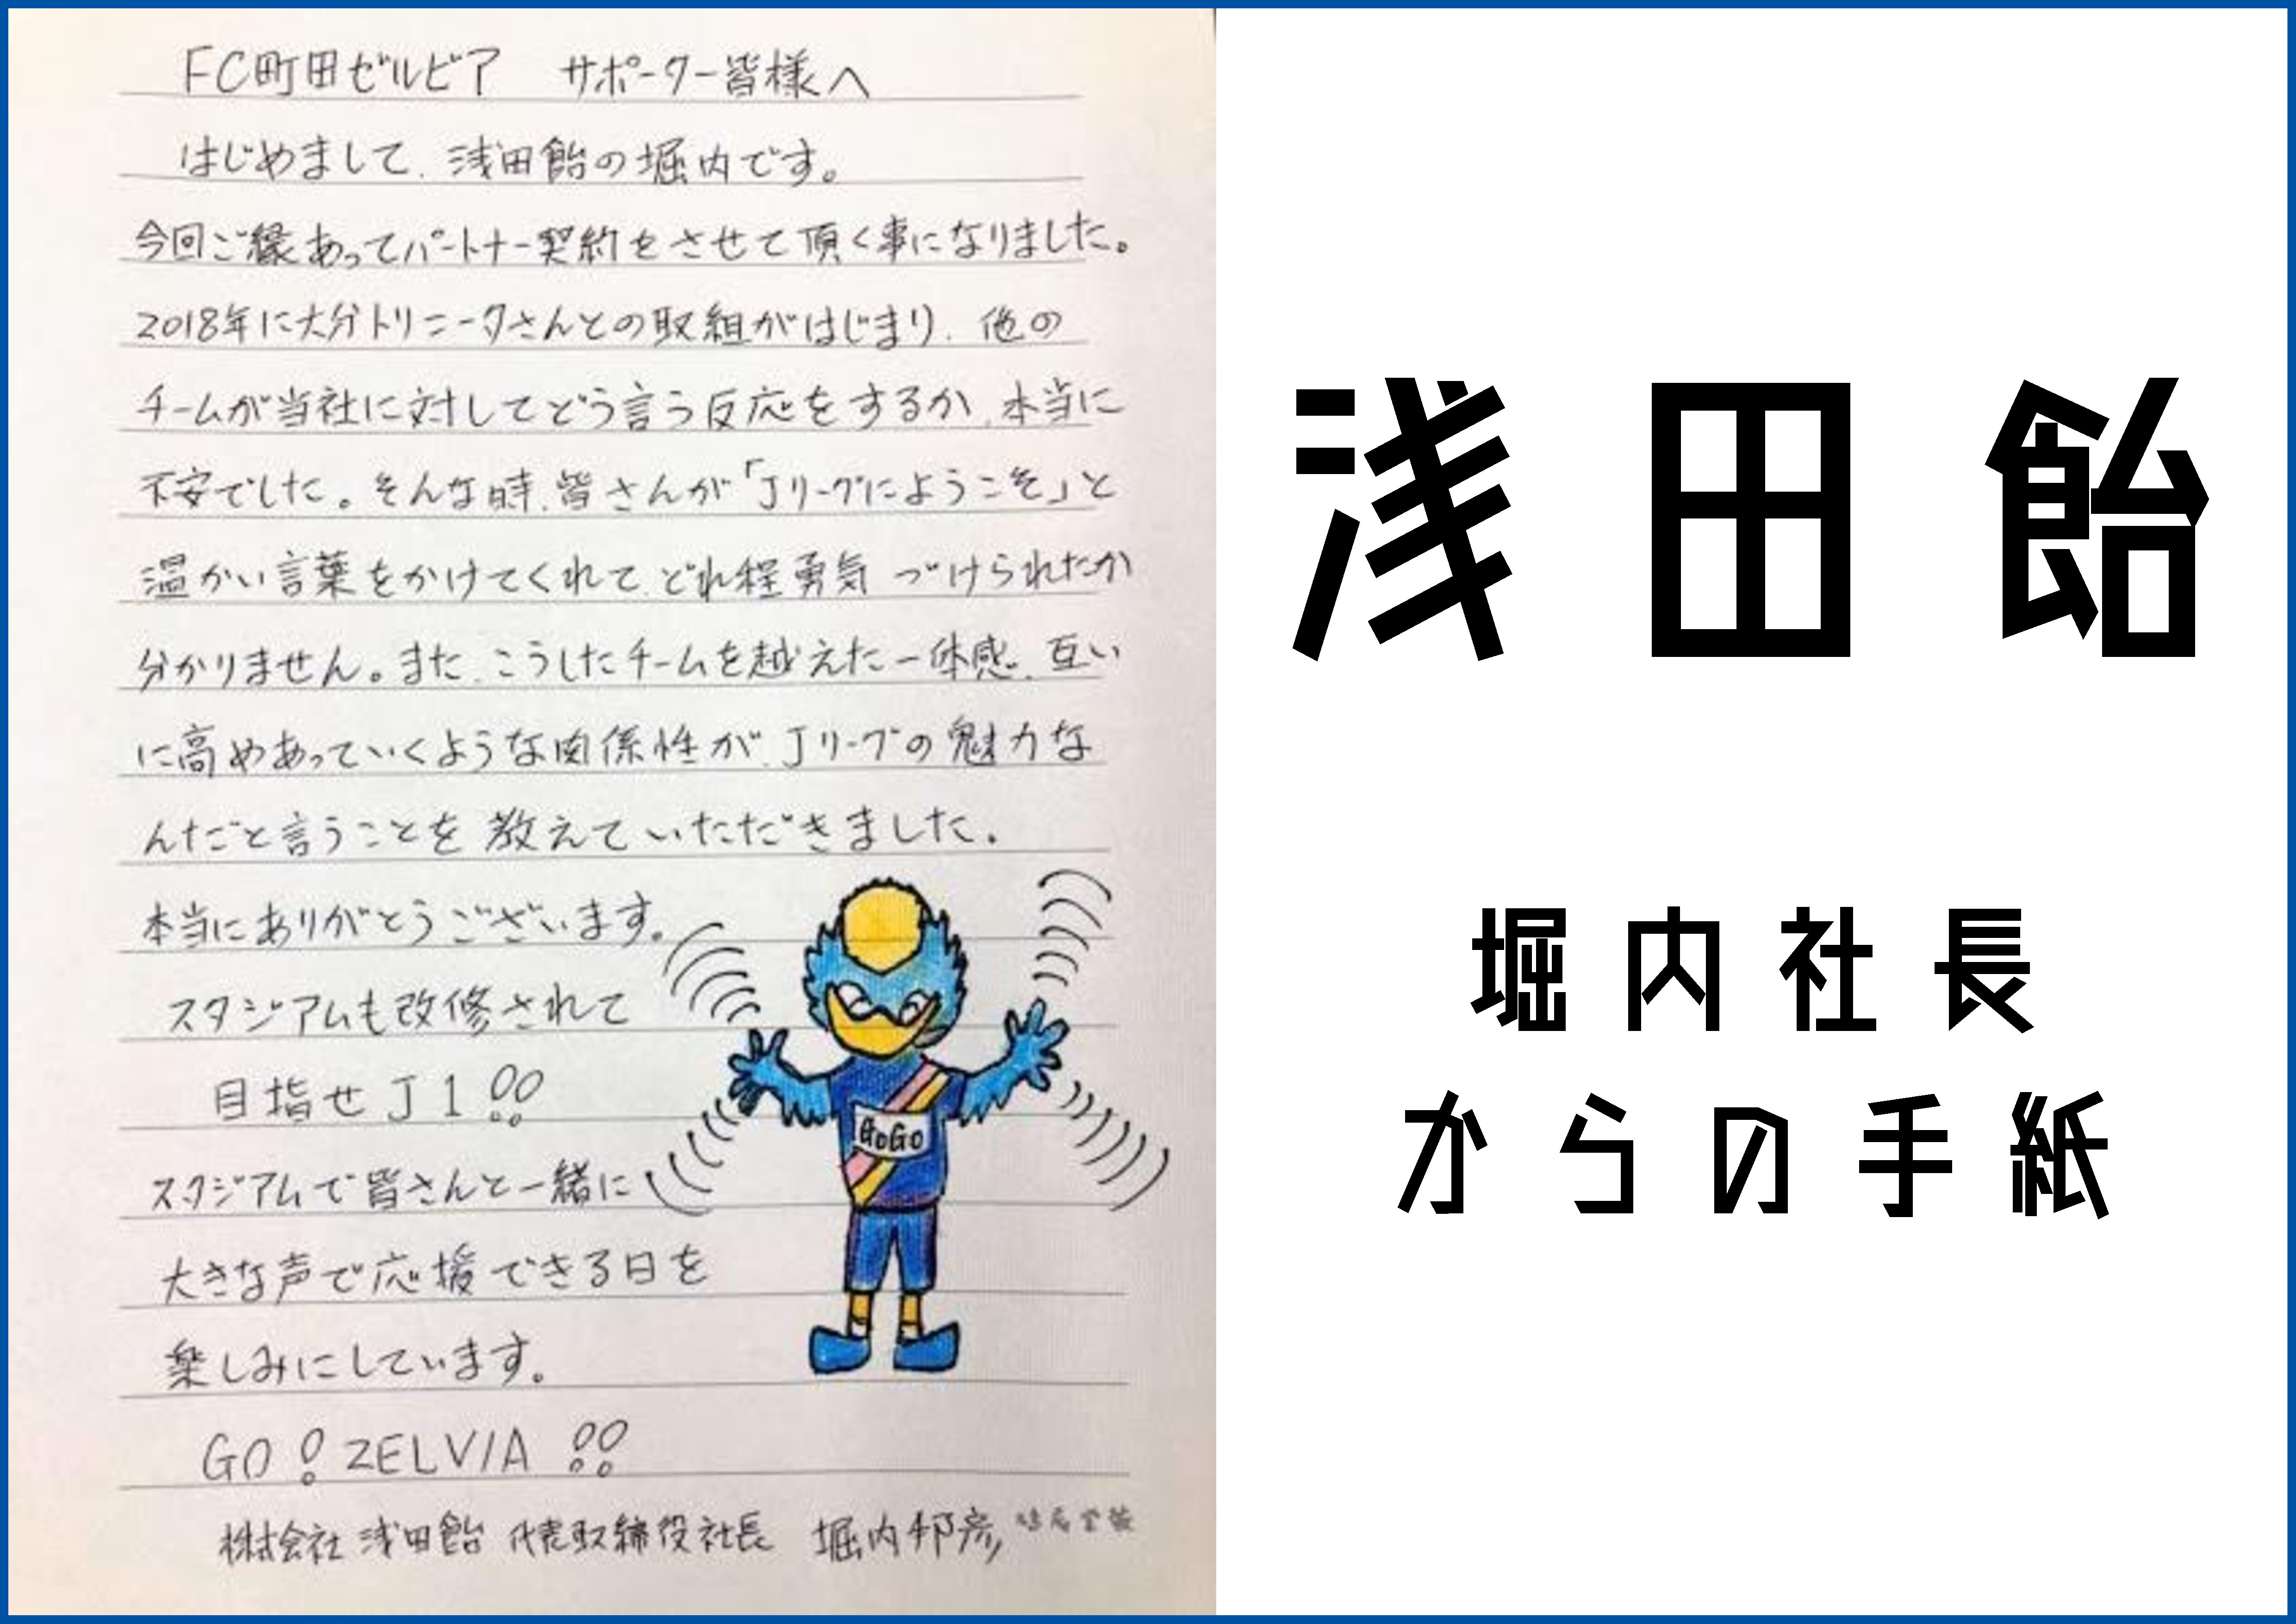 FC町田ゼルビア　サポーター皆様へ
はじめまして、浅田飴の堀内です。
今回ご縁あってパートナー契約をさせて頂く事になりました。
2018年に大分トリニータさんとの取組がはじまり、他の
チームが当社に対してどう言う反応をするか、本当に
不安でした。そんな時、皆さんが「Jリーグにようこそ」と
温かい言葉をかけてくれて、どれ程勇気づけられたか
分かりません。また、こうしたチームを越えた一体感、互い
に高めあっていくような関係性が、Jリーグの魅力な
んだと言うことを教えていただきました。
本当にありがとうございます。
スタジアムも改修されて
目指せJ1!!
スタジアムで皆さんと一緒に
大きな声で応援できる日を
楽しみにしています。
GO!ZELVIA!!
株式会社浅田飴 代表取締役社長　堀内邦彦
GoGo
浅田飴
堀内社長
からの手紙